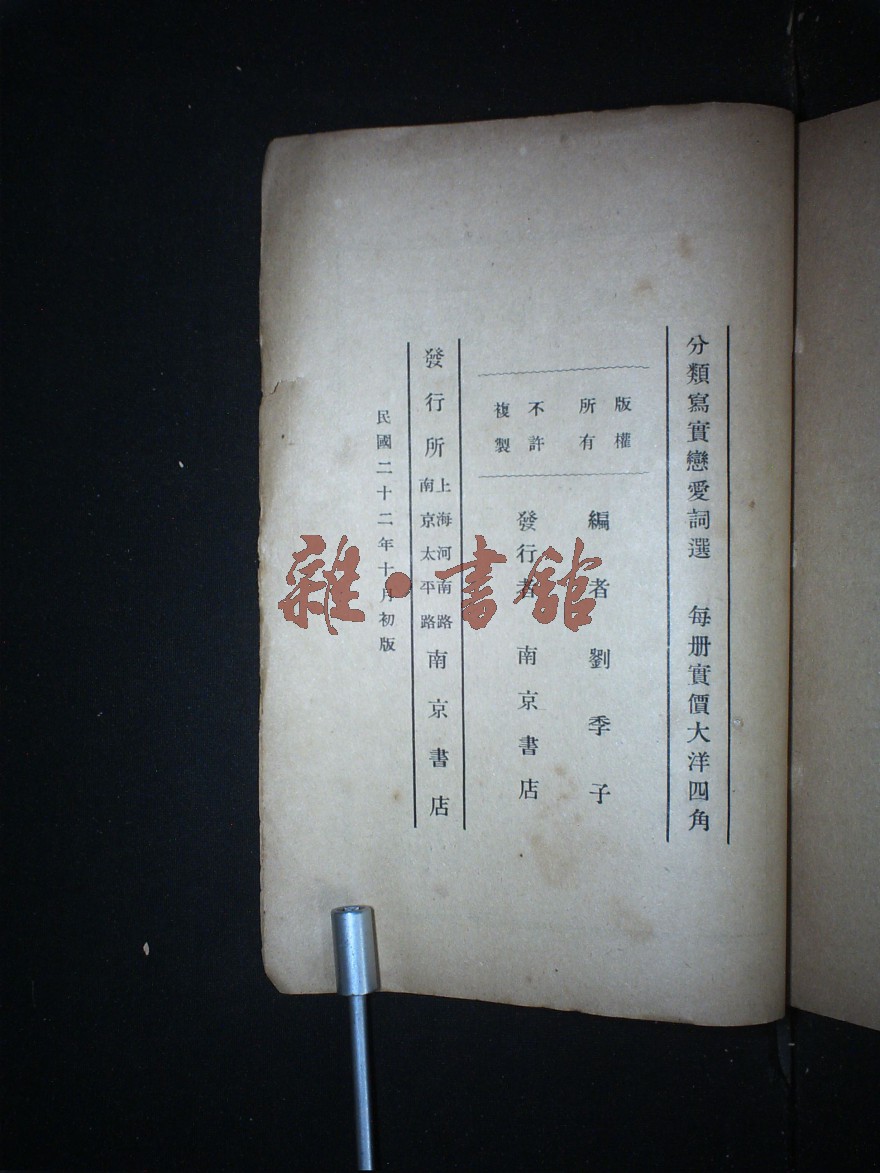 分類寫實戀愛詞選　每册實價大洋四角
版權
所有
不許
複製
編者　劉季子
發行者　南京書店
發行所
上海河南路
南京太平路
南京書店
民國二十二年十月初版
雜·書館